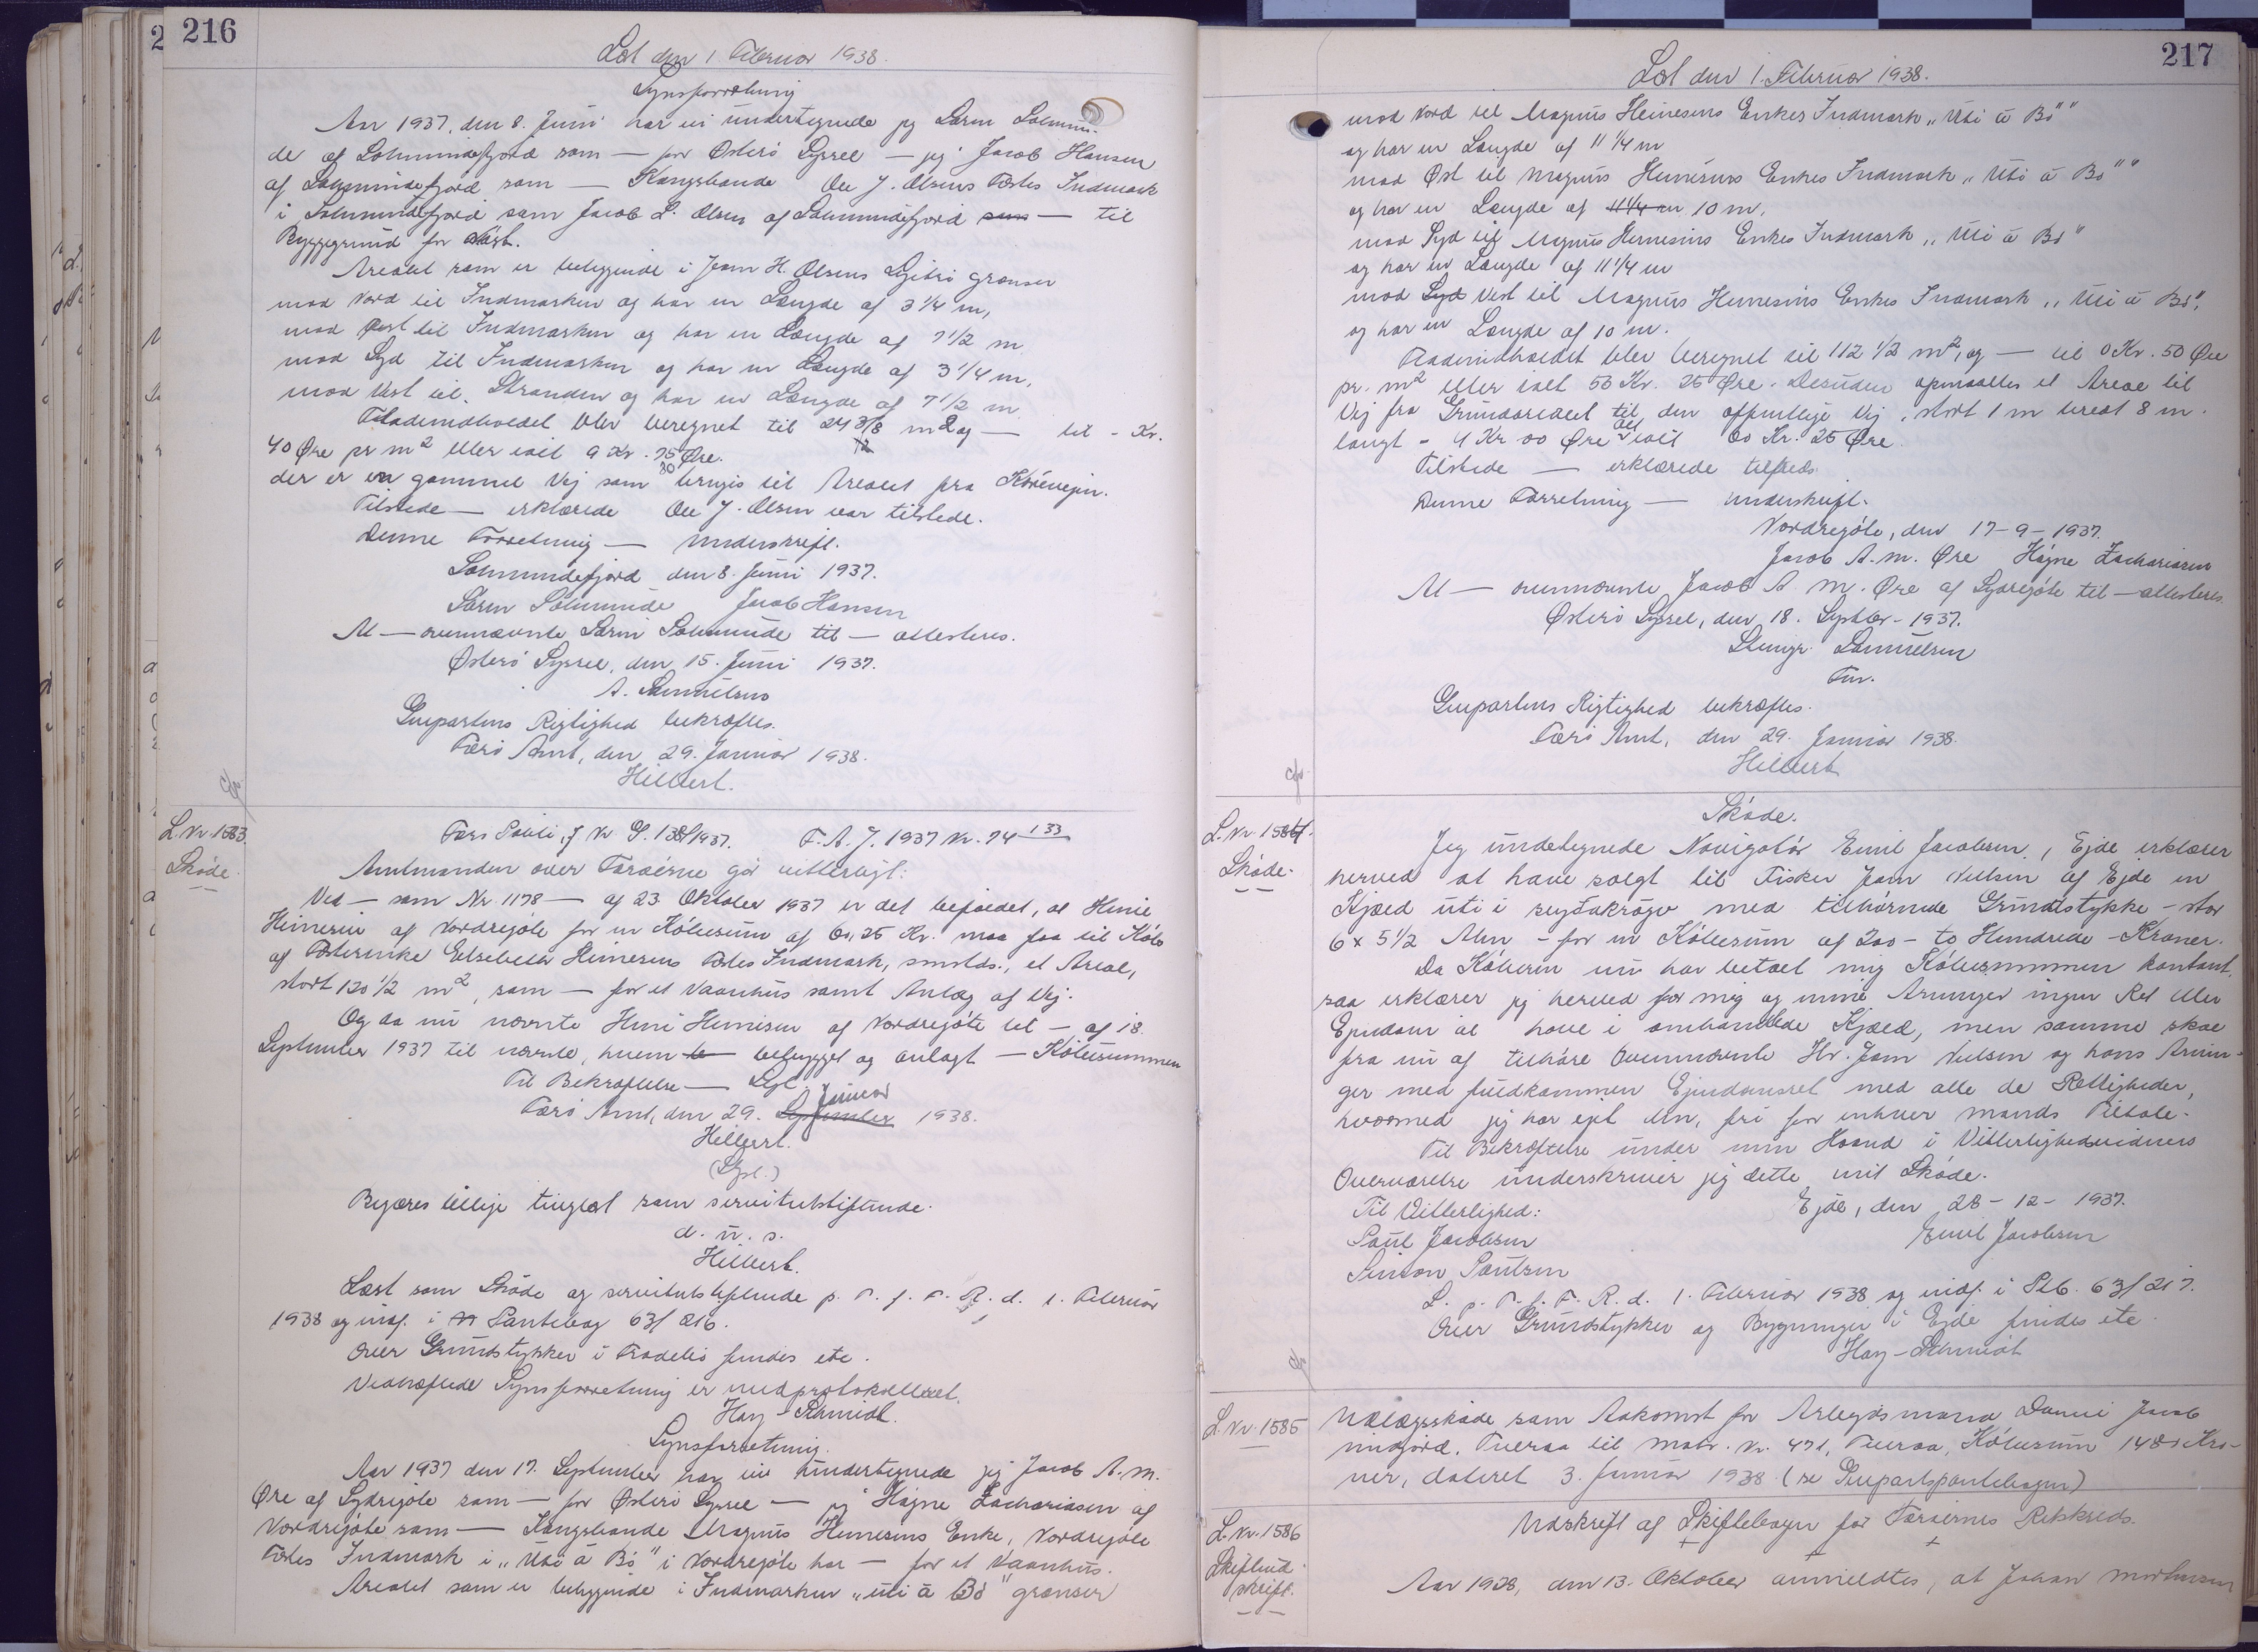 216
Læst den 1 Februar 1938.
Synsforretning
Aar 1937, den 8. Juni har vi undertegnede jeg Sørin Solmun-
de af Solmundefjord som — for Østerø Syssel — jeg Jacob Hansen
af Solmundefjord som — Kongsbonde Ole J. Olsens Fæstes Indmark
i Solmundefjord som Jacob L. Olsen af Solmundefjord — til
Byggegrund for Nøst.
Arealet som er beliggende i Joen H. Olsens grænser
mod Nord til Indmarken og har en Længde af 3 1/4 m,
mod Øst til Indmarken og har en Længde af 7 1/2 m
mod Syd til Indmarken og har en Længde af 3 1/4 m,
mod Vest til Stranden og har en Længde af 7 1/2 m.
Fladeindholdet blev beregnet til 24 3/8 m2 og — til - Kr.
40 Øre pr m2 eller ialt 9 Kr. 75 Øre.
der er en gammel Vej som bruges til Arealet fra Kørevejen.
Tilstede — erklærede Ole J. Olsen var tilstede.
Denne Forretning — Underskrift.
Solmundefjord den 8. Juni 1937.
Sørin Solmunde Jacob Hansen
At — ovennævnte Sørin Solmunde til — attesteres.
Østerø Syssel, den 15. Juni 1937.
A. Samuelsen
Genpartens Rigtighed bekræftes.
Færø Amt, den 29. Januar 1938.
Hilbert.
L. Nr. 1583.
Skøde
F. A. J. 1937 Nr. 74 133
Amtmanden over Færøerne gør vitterligt:
Ved — som Nr. 1178 — af 23 Oktober 1937 er det bifaldet, at Heine
Heinesen af Nordregøte for en Købesum af 60,25 Kr. maa faa til Købs
af Fæsterenke Elsebeth Heinesens Fæstes Indmark, smstds., et Areal,
stort 120 1/2 m2, som — for et Vaanhus samt Anlæg af Vej.
Og da nu nævnte Heine Heinesen af Nordregøte til — af 18.
September 1937 til nævnte, hvem bebygget og anlagt — Købesummen
Til Bekræftelse — Segl.
Færø Amt, den 29. September Januar 1938.
Hilbert.
(Sgl.)
Begæres tillige tinglæst som servitutstiftende.
d. u. s.
Hilbert.
Læst som Skøde og servitutstiftende p. T. f. F. R. d. 1. Februar
1938 og indf. i Pantebog 63/216.
Over Grundstykker i findes etc.
Vedhæftede Synsforretning er medprotokolleret.
Hay-Schmidt.
Synsforretning.
Aar 1937 den 17. September har vi undertegnede jeg Jacob A. M.
Øre af Sydregøte som — for Østerø Syssel — jeg Høgne Zachariasen af
Nordregøte som — Kongsbonde Magnus Heinesens Enke, Nordregøte
Fæstes Indmark i „Uti á Bø" i Nordregøte har — for et Vaanhus.
Arealet som er beliggende i Indmarken „uti á Bø" grænser
217
Læst den 1. Februar 1938.
mod Nord til Magnus Heinesens Enkes Indmark „Uti á Bø"
og har en Længde af 11 1/4 m
mod Øst til Magnus Heinesens Enkes Indmark „Uti á Bø"
og har en Længde af 11 1/4 m 10 m,
mod Syd til Magnus Heinesens Enkes Indmark „Uti á Bø"
og har en Længde af 11 1/4 m
mod Syd Vest til Magnus Heinesens Enkes Indmark „Uti á Bø",
og har en Længde af 10 m.
Fladeindholdet blev beregnet til 112 1/2 m2, og — til 0 Kr. 50 Øre
pr. m2 eller ialt 56 Kr. 25 Øre. Desuden opmaaltes et Areal til
Vej fra Grundarealet til den offentlige Vej, stort 1 m bredt 8 m.
langt - 4 Kr 00 Øre alt ialt 60 Kr. 25 Øre.
Tilstede — erklærede tilfreds
Denne Forretning — Underskrift.
Nordregøte, den 17-9-1937.
Jacob A. M. Øre Høgne Zachariasen
At — ovennævnte Jacob A. M. Øre af Sydregøte til — attesteres.
Østerø Syssel, den 18. Septbr. 1937.
Samuelsen
Fm.
Genpartens Rigtighed bekræftes.
Færø Amt, den 29. Januar 1938.
Hilbert
L. Nr. 1584.
Skøde.
Skøde.
Jeg undetegnede Navigatør Emil Jacobsen, Ejde erklærer
herved at have solgt til Fisker Joen Nielsen af Ejde en
Kjæld uti i med tilhørende Grundstykke - stor
6 x 5 1/2 Alen - for en Købesum af 200 - to Hundrede - Kroner.
Da Køberen nu har betalt mig Købesummen kontant,
saa erklærer jeg herved for mig og mine Arvinger ingen Ret eller
Ejendom at have i omhandlede Kjæld, men samme skal
fra nu af tilhøre Ovennævnte Hr. Joen Nielsen og hans Arvin-
ger med fuldkommen Ejendomsret med alle de Rettigheder,
hvormed jeg har ejet den, fri for enhver Mands Tiltale.
Til Bekræftelse under min Haand i Vitterlighedsvidners
Overværelse underskriver jeg dette mit Skøde.
Til Vitterlighed: Ejde, den 28-12-1937.
Poul Jacobsen Emil Jacobsen
Simon Poulsen
L. p. T. f. F. R. d. 1. Februar 1938 og indf. i Ptb. 63/217.
Over Grundstykker og Bygninger i Ejde findes etc.
Hay-Schmidt
L. Nr. 1585
Udlægsskøde som Adkomst for Arbejdsmand Daniel Jacob
Nidgjord, Tveraa til Matr. Nr. 471, Tveraa, Købesum 1480 Kro-
ner, dateret 3. Januar 1938 (se Genpartspantebogen)
L. Nr. 1586
Skifteud-
skrift.
Udskrift af Skiftebogen for Færøernes Retskreds.
Aar 1928, den 13. Oktober anmeldtes, at Johan Mortensen